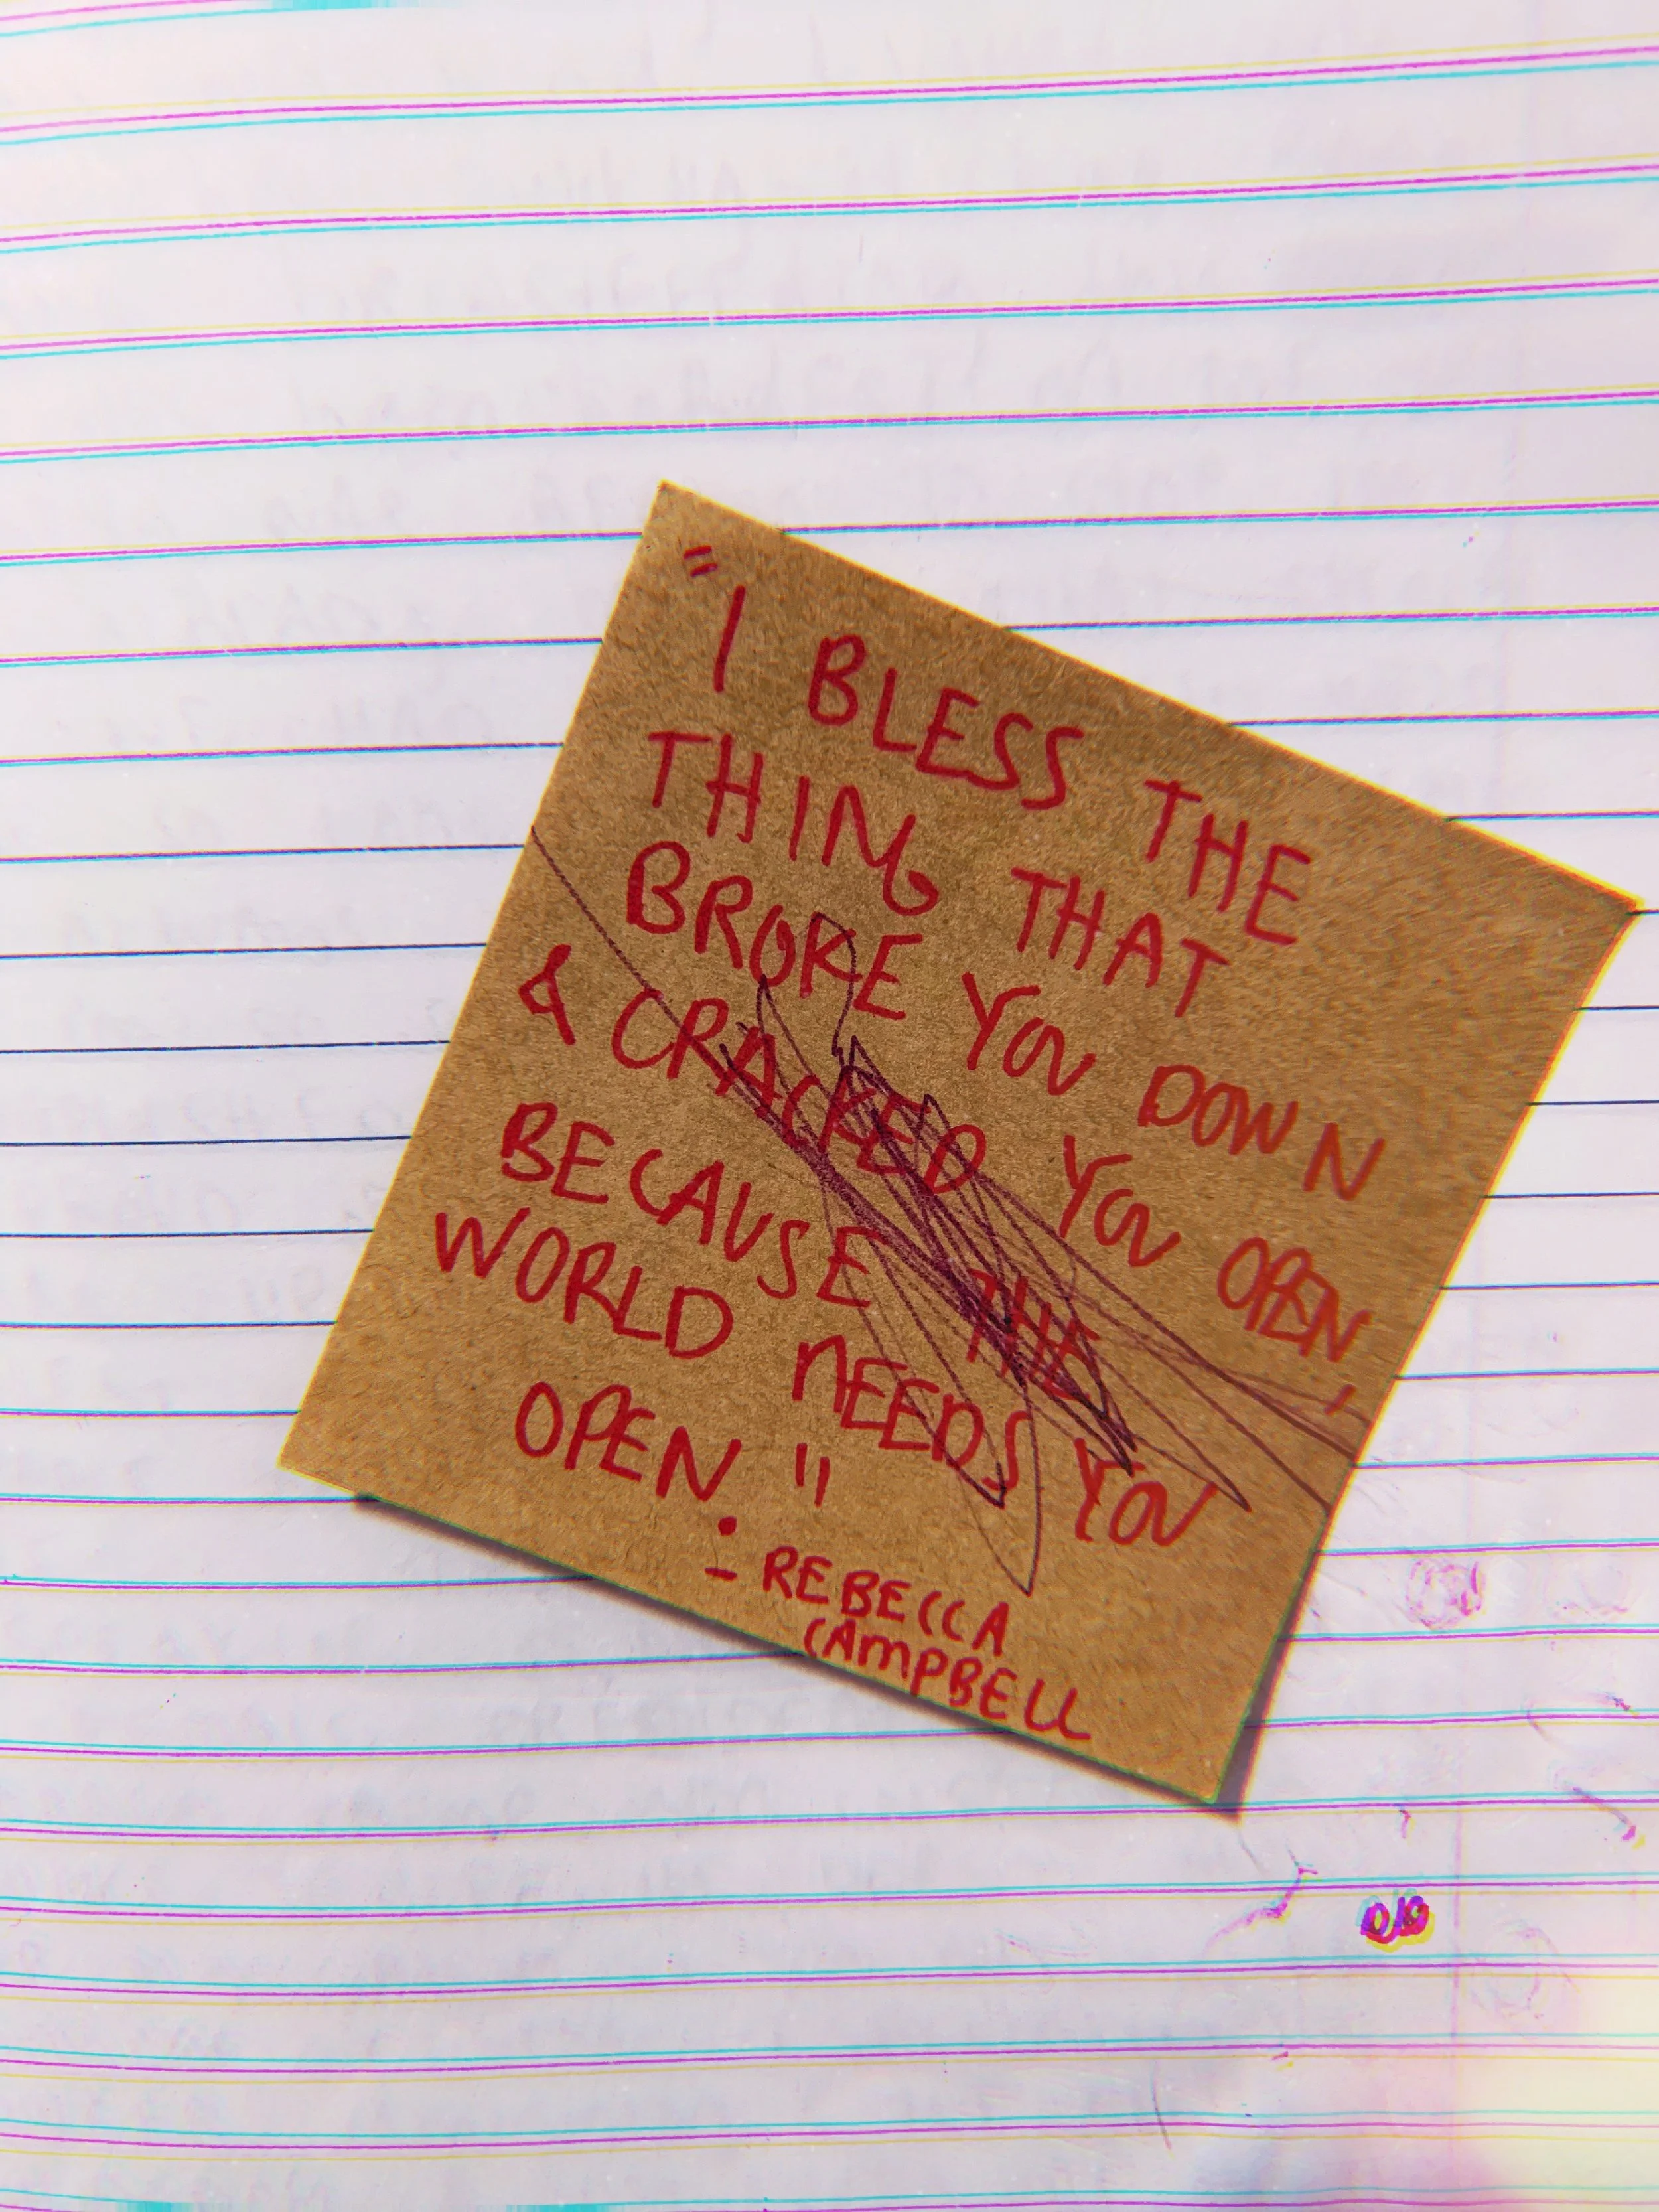 "I BLESS THE
THING THAT
BROKE YOU DOWN
& CRACKED YOU OPEN,
BECAUSE THE
WORLD NEEDS YOU
OPEN."
- REBECCA
CAMPBELL